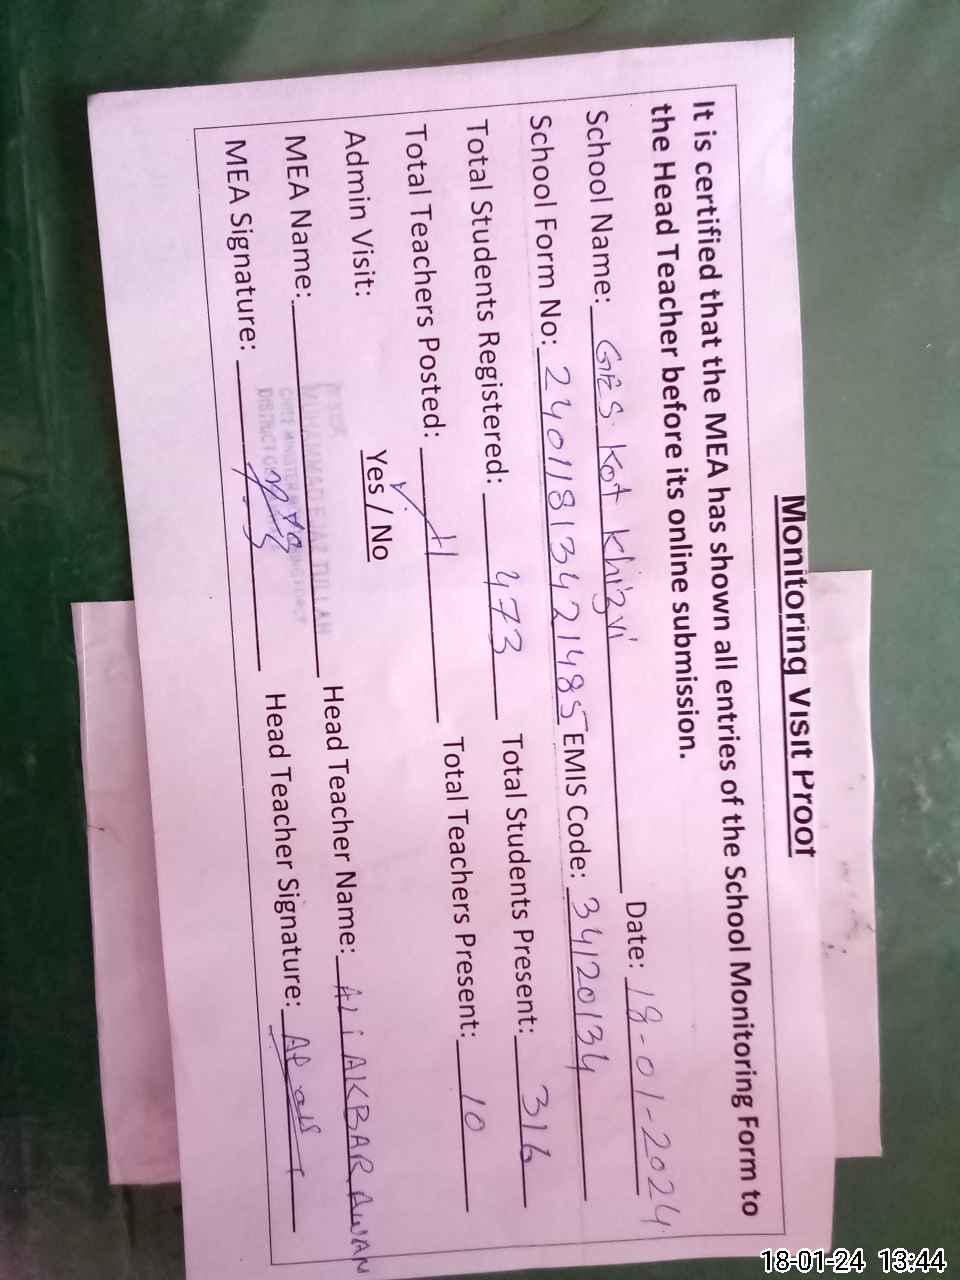 Monitoring Visit Proof
It is certified that the MEA has shown all entries of the School Monitoring Form to
the Head Teacher before its online submission.
School Name: GES Kot Khizvi Date: 18-01-2024
School Form No: 24011813421485 EMIS Code: 34120134
Total Students Registered: 473 Total Students Present: 316
Total Teachers Posted: 11 Total Teachers Present: 10
Admin Visit: Yes / No
MEA Name: MUHAMMAD EJAZ Head Teacher Name: ALi AKBAR AWAN
MEA Signature: Head Teacher Signature:
18-01-24 13:44